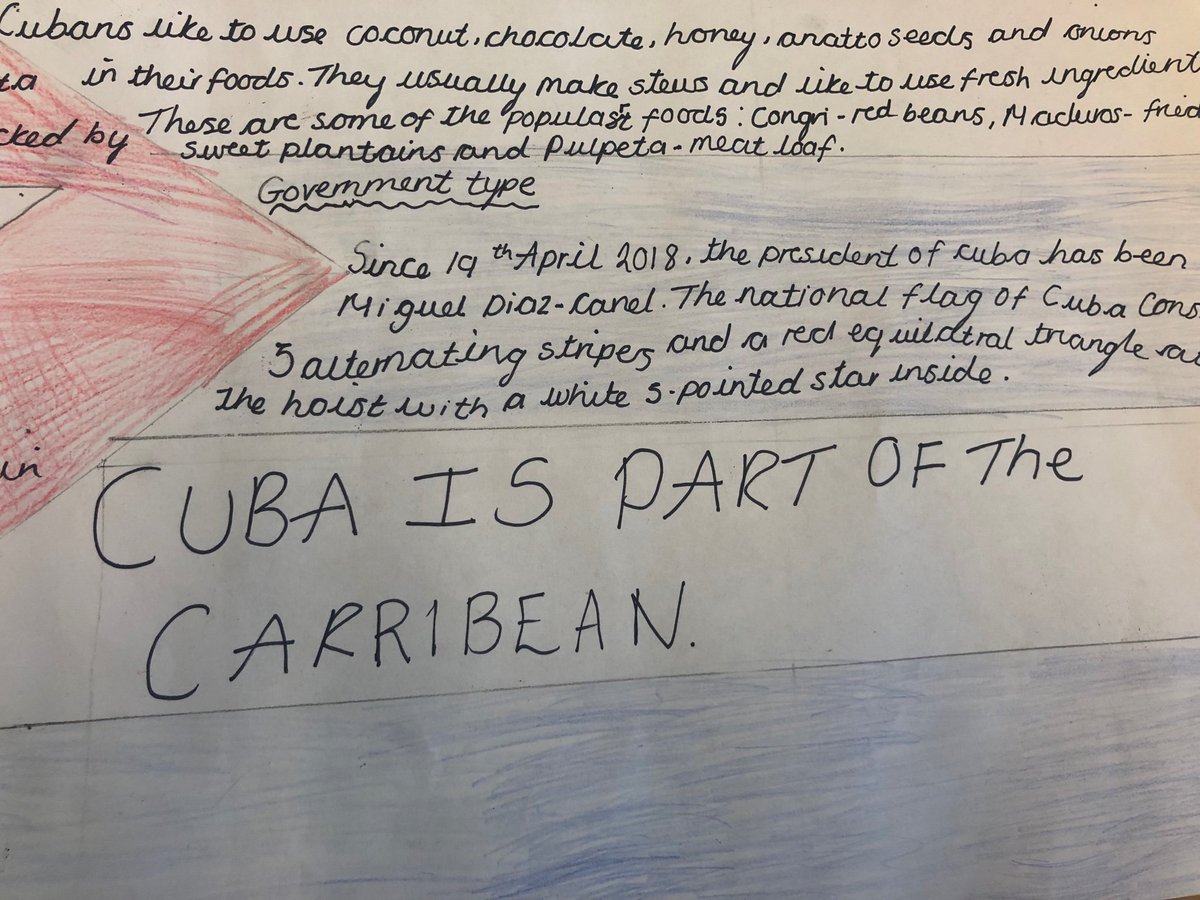 Cubans like to use coconut, chocolate, honey, anatto seeds and onions
ta in their foods. They usually make stews and like to use fresh ingredient
These are some of the popular foods: Congri - red beans, Maduros - fried
cked by sweet plantains and Pulpeta - meat loaf.
Government type
Since 19th April 2018, the president of cuba has been
Miguel Diaz-Canel. The national flag of Cuba Cons
5 alternating stripes and a red equilatral triangle at
the hoist with a white 5-pointed star inside.
in
CUBA IS PART OF The
CARRIBEAN.